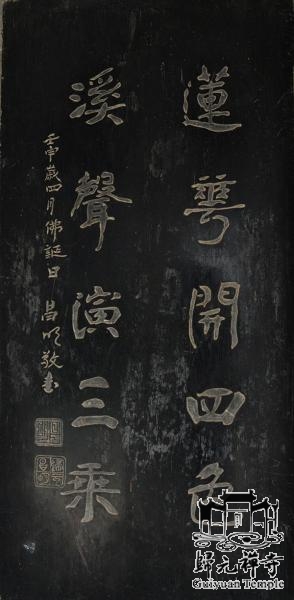 蓮華開四色
溪聲演三乘
壬申歲四月佛誕日 昌明敬書
歸元禪寺
Guiyuan Temple